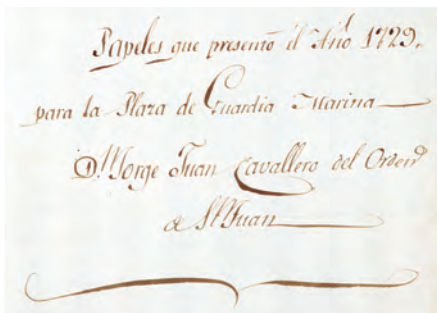 Papeles que presentó él Año 1729.
para la Plaza de Guardia Marina
D.ⁿ Jorge Juan Cavallero del Orden
de Sⁿ Juan